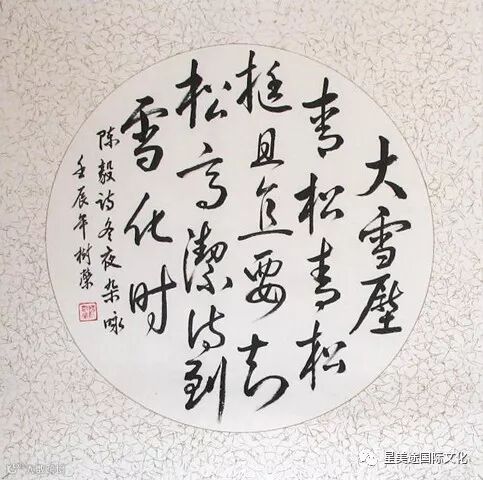 大雪壓
青松青松
挺且直要知
松高潔待到
雪化时
陈毅诗冬夜杂咏
壬辰年树榮
星美途国际文化